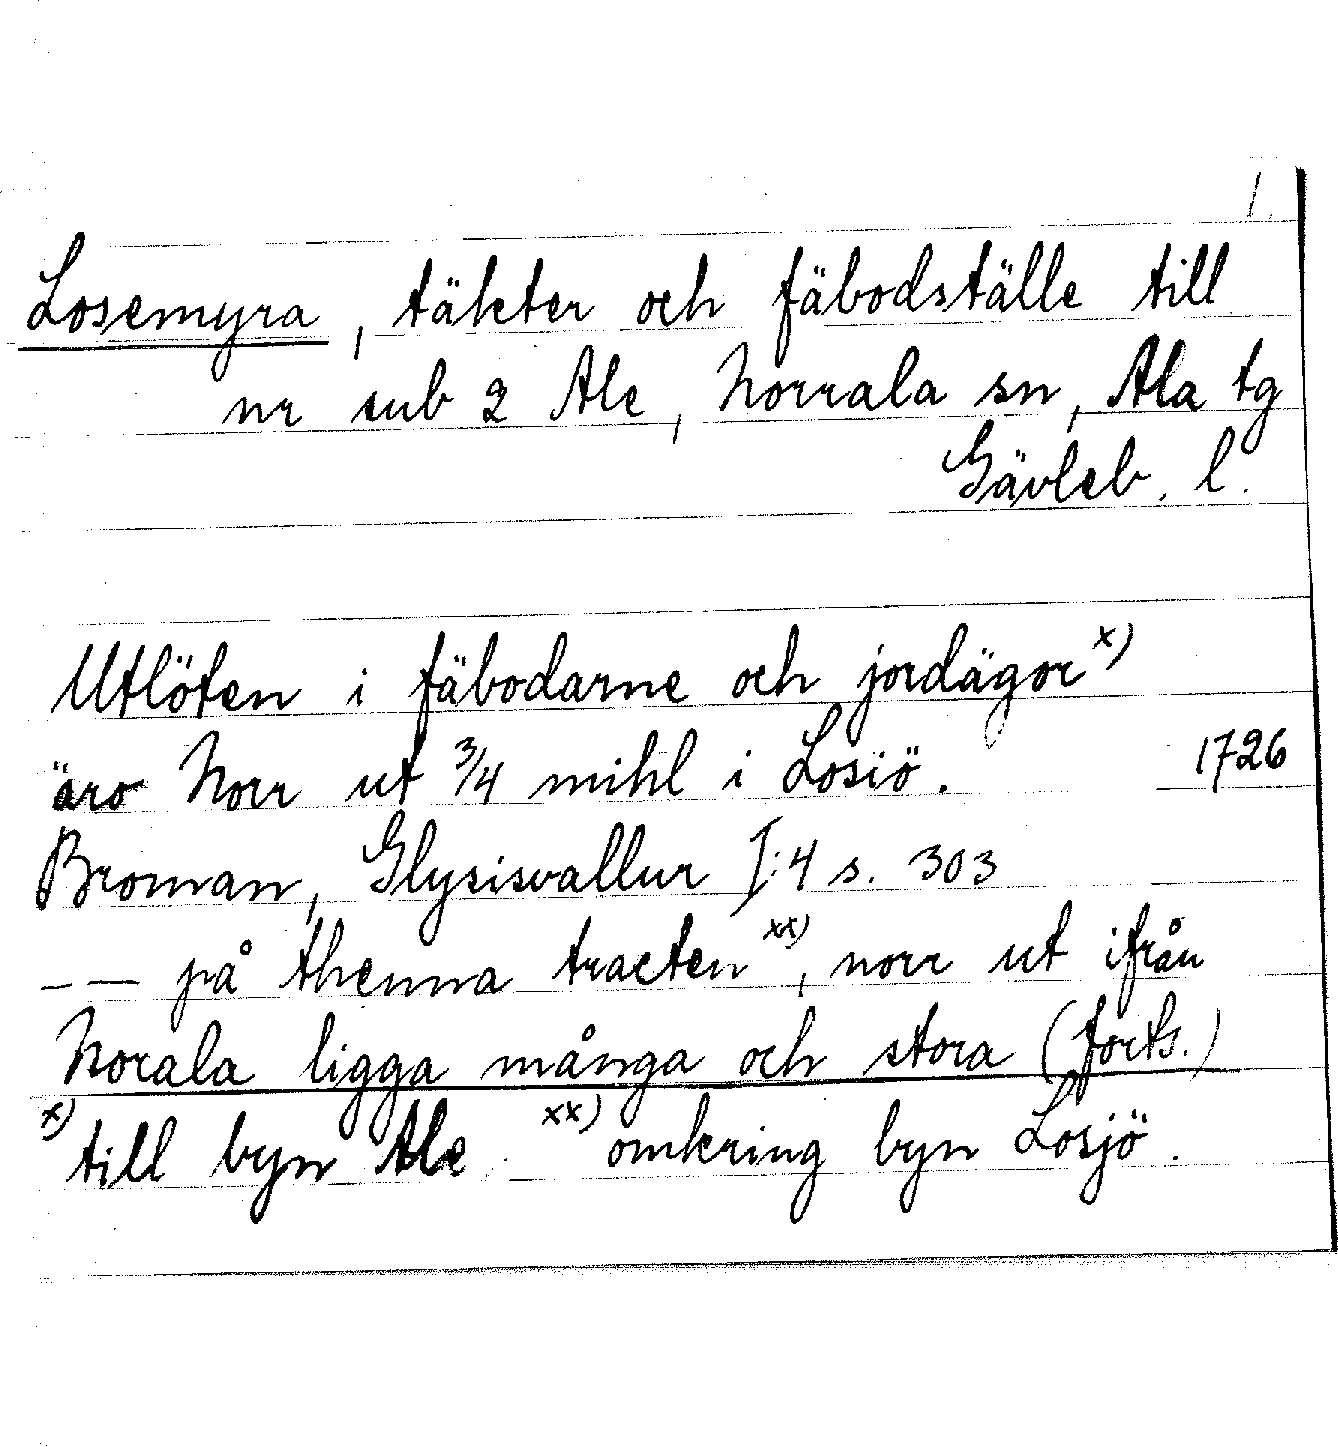 1.
Losemyra, täkter och fäbodställe till
nr sub 2 Ale, Norrala sn, Ala tg
Gävleb. l.
Utlöten i fäbodarne och jordägor x)
äro Norr ut 3/4 mihl i Losiö. 1726
Broman, Glysisvallur I:4 s. 303
— — på thenna tracten xx), norr ut ifrån
Norala ligga många och stora (forts.)
x) till byn Ale. xx) omkring byn Losjö.